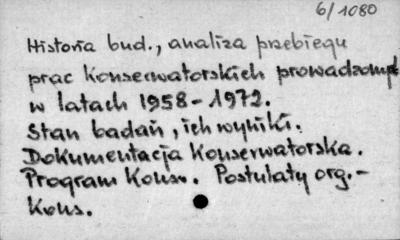 6/1080
Historia bud., analiza przebiegu
prac konserwatorskich prowadzonych
w latach 1958-1972.
Stan badań, ich wyniki.
Dokumentacja Konserwatorska.
Program Kons. Postulaty org.-
Kons.